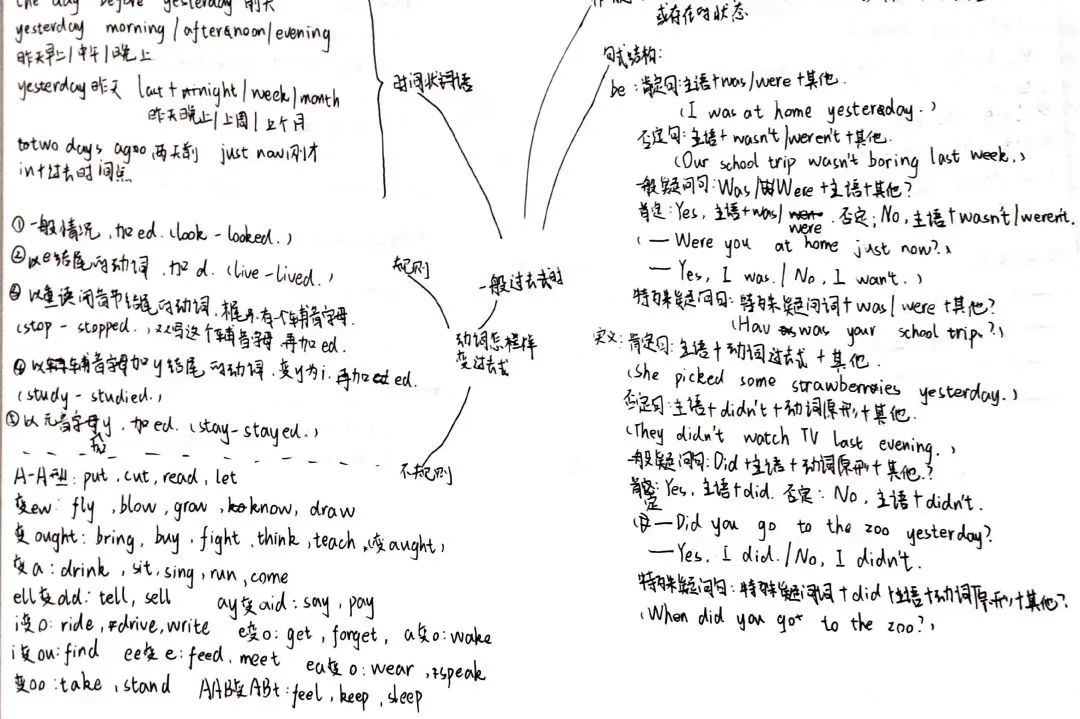 the day before yesterday 前天
yesterday morning/afternoon/evening
昨天早上/中午/晚上
yesterday昨天 last+night/week/month
昨天晚上/上周/上个月
two days ago两天前 just now刚才
in+过去时间点
时间状语
①一般情况,加ed.(look-looked.)
②以e结尾的动词,加d.(live-lived.)
③以重读闭音节结尾的动词,末尾有一个辅音字母.
(stop-stopped.)双写这个辅音字母,再加ed.
④以辅音字母加y结尾的动词,变y为i.再加ed.
(study-studied.)
⑤以元音字母加y,加ed.(stay-stayed.)
规则
一般过去时
动词怎样
变过去式
不规则
A-A型:put,cut,read,let
变ew:fly,blow,grow,know,draw
变ought:bring,buy,fight,think,teach,(变aught)
变a:drink,sit,sing,run,come
ell变old:tell,sell ay变aid:say,pay
i变o:ride,drive,write e变o:get,forget,a变o:wake
i变ou:find ee变e:feed,meet ea变o:wear,speak
变oo:take,stand AAB变ABt:feel,keep,sleep
或存在的状态
句式结构:
be:肯定句:主语+was/were+其他.
(I was at home yesterday.)
否定句:主语+wasn't/weren't+其他.
(Our school trip wasn't boring last week.)
一般疑问句:Was/Were+主语+其他?
肯定:Yes,主语+was/were.否定:No,主语+wasn't/weren't.
(—Were you at home just now?)
—Yes, I was./No, I wan't.)
特殊疑问句:特殊疑问词+was/were+其他?
(Hav was your school trip?)
实义:肯定句:主语+动词过去式+其他.
(She picked some strawberries yesterday.)
否定句:主语+didn't+动词原形+其他.
(They didn't watch TV last evening.)
一般疑问句:Did+主语+动词原形+其他?
肯定:Yes,主语+did.否定:No,主语+didn't.
(—Did you go to the zoo yesterday?
—Yes, I did./No, I didn't.
特殊疑问句:特殊疑问词+did+主语+动词原形+其他?
(When did you go to the zoo?)